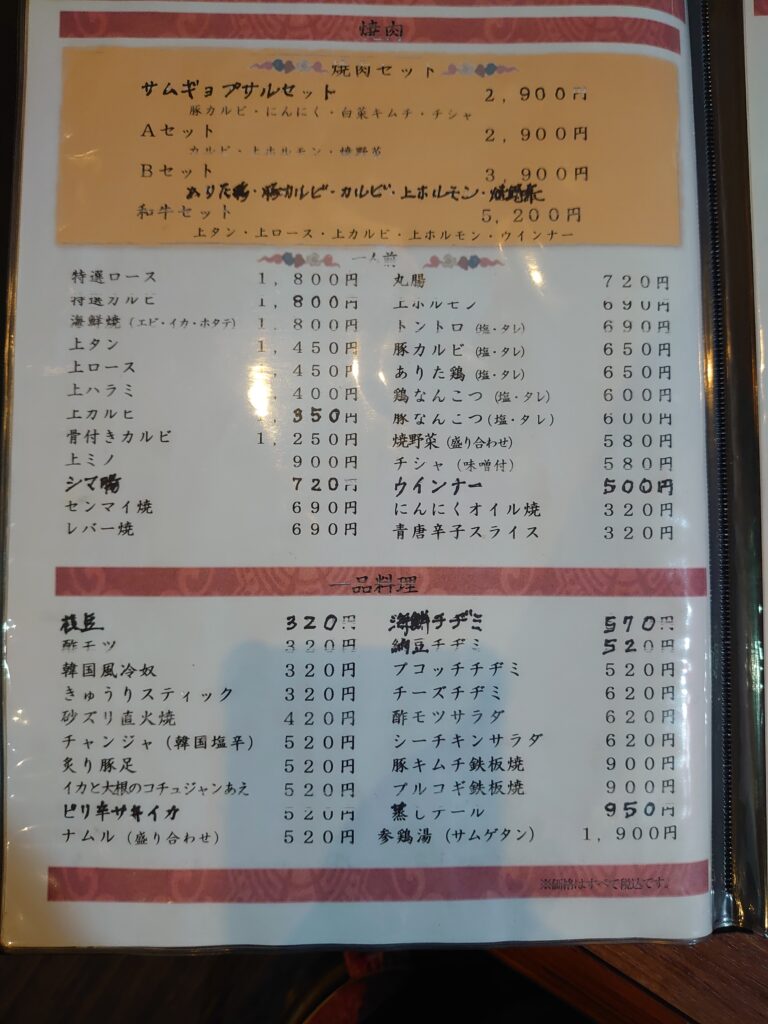 焼肉
焼肉セット
サムギョプサルセット 2,900円
豚カルビ・にんにく・白菜キムチ・チシャ
Aセット 2,900円
カルビ・上ホルモン・焼野菜
Bセット 3,900円
ありた鶏・豚カルビ・カルビ・上ホルモン・焼野菜
和牛セット 5,200円
上タン・上ロース・上カルビ・上ホルモン・ウインナー
一人前
特選ロース 1,800円
特選カルビ 1,800円
海鮮焼(エビ・イカ・ホタテ) 1,800円
上タン 1,450円
上ロース 1,450円
上ハラミ 1,400円
上カルビ 1,350円
骨付きカルビ 1,250円
上ミノ 900円
シマ腸 720円
センマイ焼 690円
レバー焼 690円
丸腸 720円
上ホルモン 690円
トントロ(塩・タレ) 690円
豚カルビ(塩・タレ) 650円
ありた鶏(塩・タレ) 650円
鶏なんこつ(塩・タレ) 600円
豚なんこつ(塩・タレ) 600円
焼野菜(盛り合わせ) 580円
チシャ(味噌付) 580円
ウインナー 500円
にんにくオイル焼 320円
青唐辛子スライス 320円
一品料理
枝豆 320円
酢モツ 320円
韓国風冷奴 320円
きゅうりスティック 320円
砂ズリ直火焼 420円
チャンジャ(韓国塩辛) 520円
炙り豚足 520円
イカと大根のコチュジャンあえ 520円
ピリ辛サキイカ 520円
ナムル(盛り合わせ) 520円
海鮮チヂミ 570円
納豆チヂミ 520円
プコッチチヂミ 520円
チーズチヂミ 620円
酢モツサラダ 620円
シーチキンサラダ 620円
豚キムチ鉄板焼 900円
プルコギ鉄板焼 900円
蒸しテール 950円
参鶏湯(サムゲタン) 1,900円
※価格はすべて税込です。